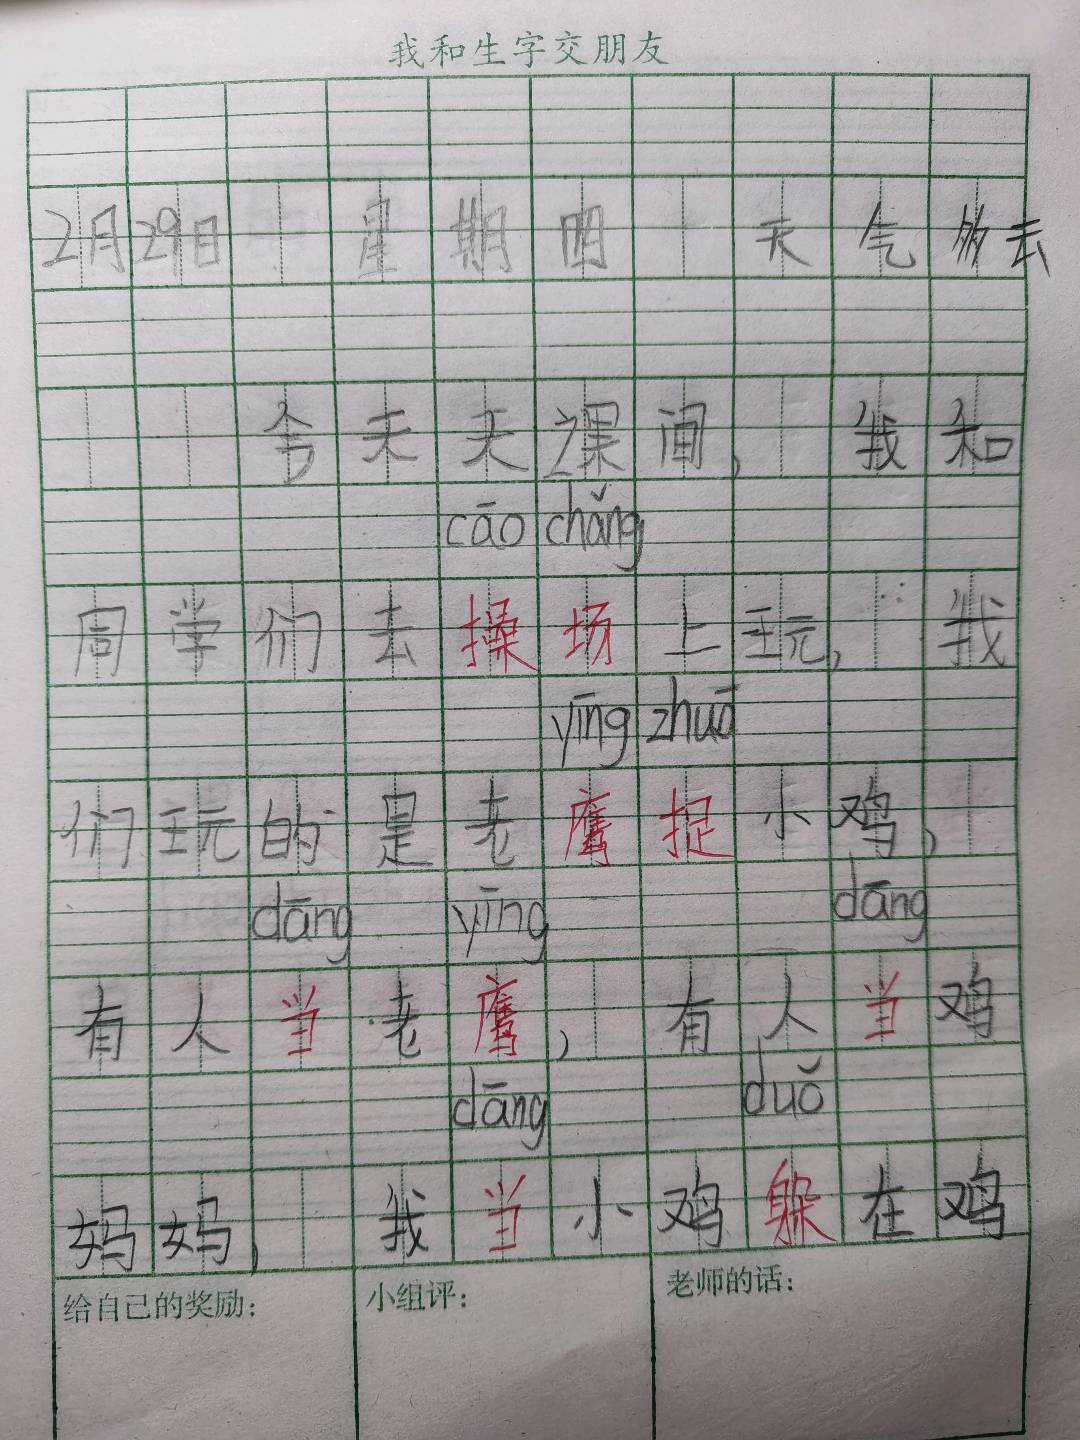 我和生字交朋友
2月29日 星期四 天气多云
今天天课间, 我和
cāo chǎng
同学们去操场上玩, 我
yīng zhuō
们玩的是老鹰捉小鸡,
dāng yīng dāng
有人当老鹰, 有人当鸡
dāng duǒ
妈妈, 我当小鸡躲在鸡
给自己的奖励: 小组评: 老师的话: